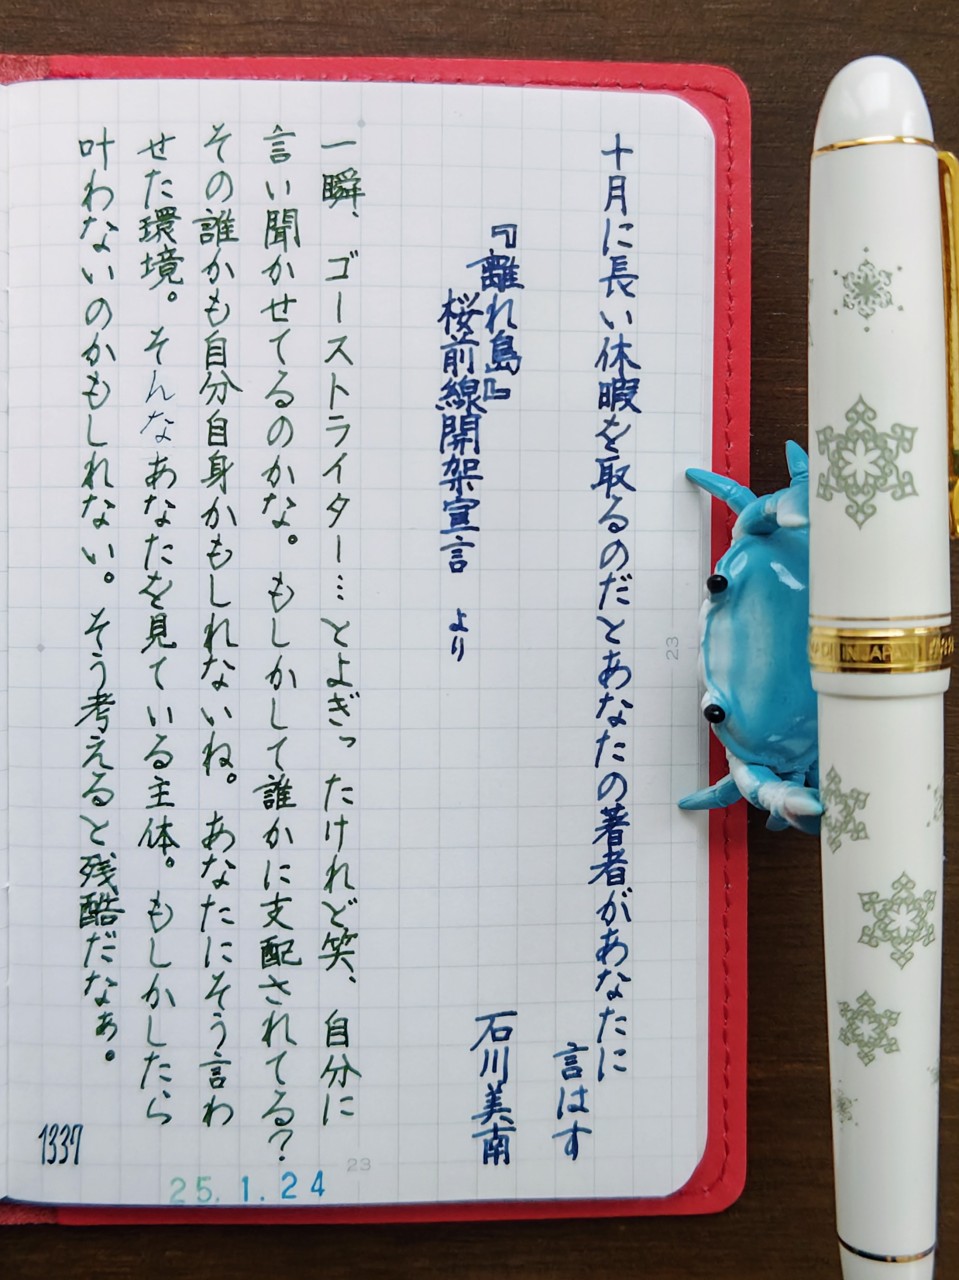 十月に長い休暇を取るのだとあなたの著者があなたに
言はす
石川美南
『離れ島』
桜前線開架宣言 より
一瞬、ゴーストライター…とよぎったけれど笑、自分に
言い聞かせてるのかな。もしかして誰かに支配されてる?
その誰かも自分自身かもしれないね。あなたにそう言わ
せた環境。そんなあなたを見ている主体。もしかしたら
叶わないのかもしれない。そう考えると残酷だなぁ。
1337
25.1.24
23
23
MADE IN JAPAN